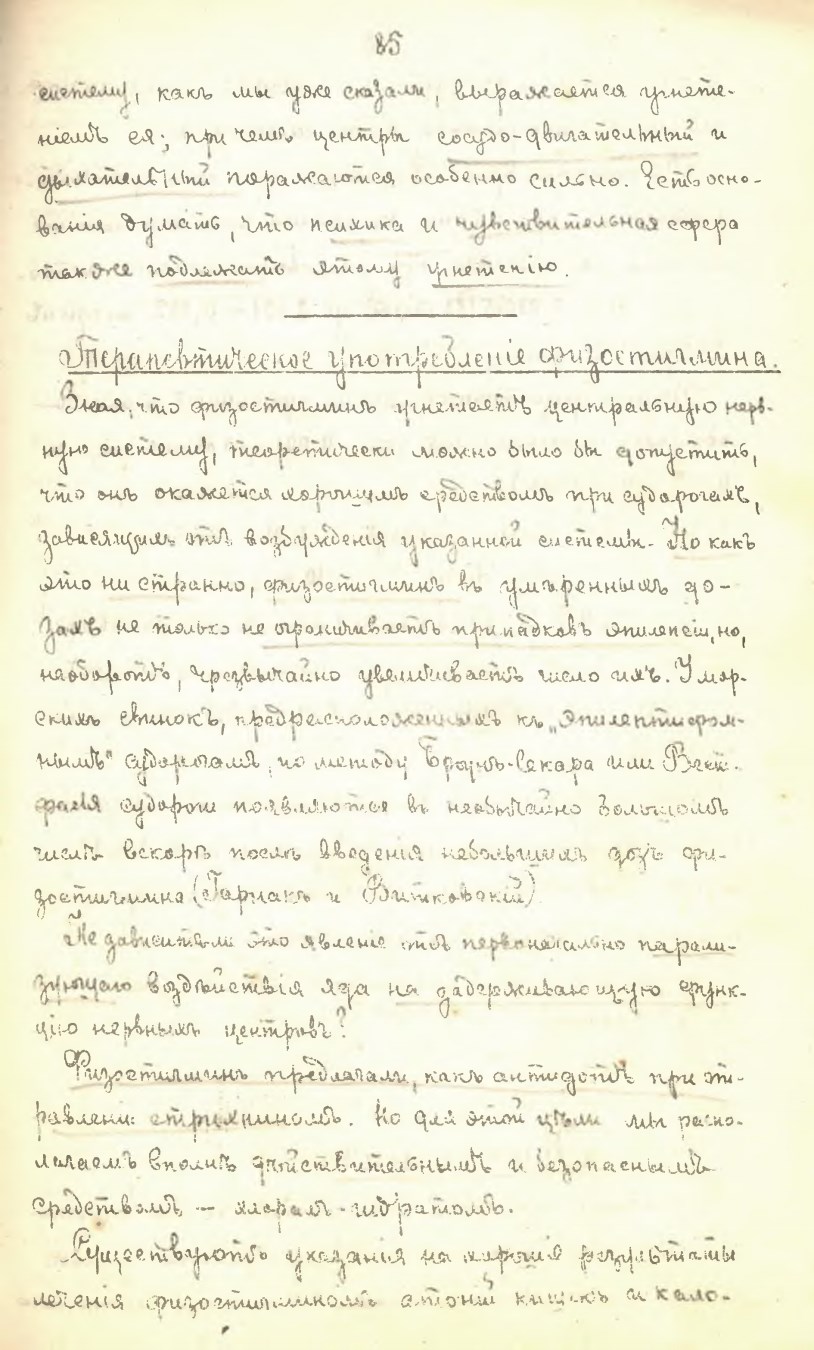 85
систему, какъ мы уже сказали, выражается угнете-
ніемъ ея; при чемъ центры сосудо-двигательный и
дыхательный поражаются особенно сильно. Есть осно-
ванія думать, что психика и чувствительная сфера
также подлежатъ этому угнетенію.
Терапевтическое употребленіе физостигмина.
Зная, что физостигминъ угнетаетъ центральную нерв-
ную систему, теоретически можно было бы допустить,
что онъ окажется хорошимъ средствомъ при судорогахъ,
зависящихъ отъ возбужденія указанной системы. Но какъ
это ни странно, физостигминъ въ умѣренныхъ до-
захъ не только не ограничиваетъ припадковъ эпилепсіи, но,
наоборотъ, чрезвычайно увеличиваетъ число ихъ. У мор-
скихъ свинокъ, предрасположенныхъ къ „эпилептиформ-
нымъ“ судорогамъ, по методу Броунъ-Секара или Вест-
фаля судороги появляются въ необычайно большомъ
числѣ вскорѣ послѣ введенія небольшихъ дозъ фи-
зостигмина (Гарнакъ и Витковскій)
Не зависитъ ли это явленіе отъ первоначально парали-
зующаго воздѣйствія яда на задерживающую функ-
цію нервныхъ центровъ?
Физостигминъ предлагали, какъ антидотъ при от-
равлени: стрихниномъ. Но для этой цѣли мы распо-
лагаемъ вполнѣ дѣйствительнымъ и безопаснымъ
средствомъ — хлоралъ-гидратомъ.
Существуютъ указанія на хорошіе результаты
леченія физостигминомъ атоніи кишекъ и кало-